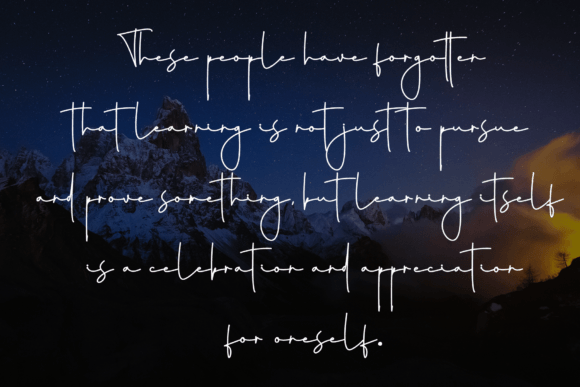 These people have forgotten
that learning is not just to pursue
and prove something, but learning itself
is a celebration and appreciation
for oneself.